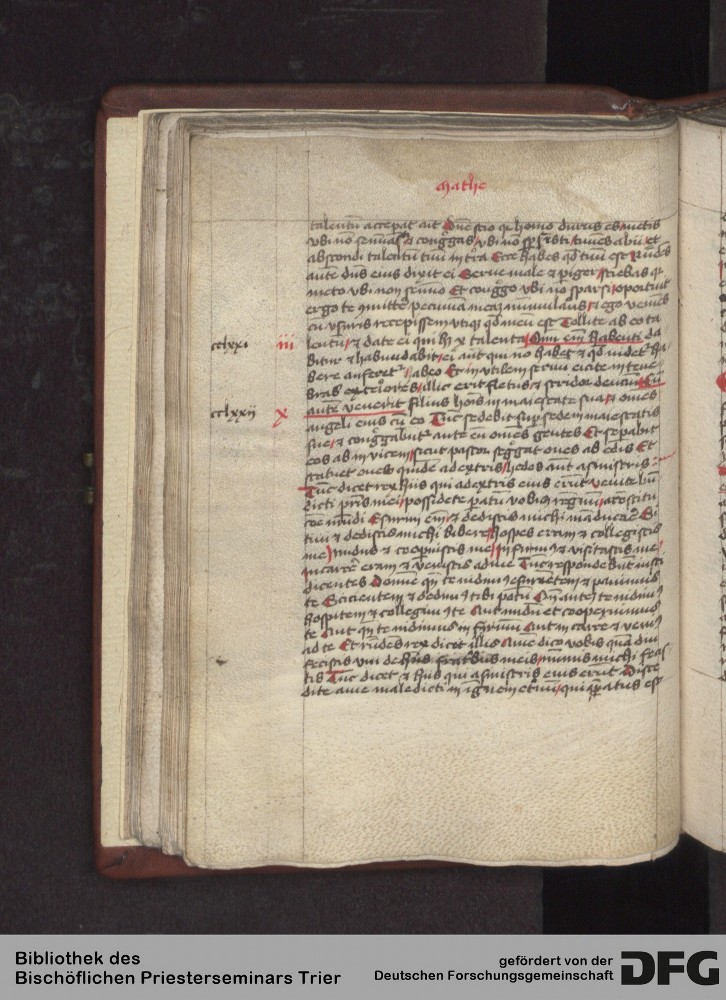 Mathe
talentu accepat ait Domine scio qr homo durus es metis
vbi no seminasti & congregas vbi no sparsisti timens abii et
abscondi talentu tuu in tra Ecce habes qd tuu est Rndes
aute dns eius dixit ei Serue male & piger sciebas qr
meto vbi non semino Et congrego vbi no sparsi oportuit
ergo te mittere pecunia mea numulariis & ego veniens
cu vsuris recepissem vtiqz qd meu est Tollite ab eo ta
cclxxi iii lentu & date ei qui hz x talenta Omi eni habenti da
bitur & habundabit ei aut qui no habet & qd videtr ha
bere auferetr abeo Et inutilem seruu eicite in tene
bras exteriores illic erit fletus & stridor dentiu Cu
cclxxii x aute venerit filius hois in maiestate sua & omes
angeli eius cu eo Tuc sedebit sup sedem maiestatis
sue & congregabutr ante eu omes gentes Et sepabit
eos ab inuicem sicut pastor segregat oues ab edis Et
statuet oues quide adextris hedos aut asinistris
Tuc dicet rex hiis qui adextris eius erut venite bn
dicti pris mei possidete paratu vobis regnu aostitu
coe mudi Esuriui eni & dedistis michi maducare Si
tiui & dedistis michi bibere hospes eram & collegistis
me nudus & cooperuistis me infirmus & visitastis me
incarcere eram & venistis adme Tuc respondebut iusti
dicentes Domine qn te vidimus esuriente & pauimus
te Sicientem & dedimus tibi potu Qn aute te vidimus
hospitem & collegimus te Aut nudu et cooperuimus
te Aut qn te vidimus infirmu Aut in carcere & venimus
ad te Et rndes rex dicet illis Ame dico vobis quadiu
fecistis vni de hiis fratribus meis minimis michi fecis
tis Tuc dicet & hiis qui asinistris eius erut Disce
dite ame maledicti in igne eternu qui paratus est
Bibliothek des
Bischöflichen Priesterseminars Trier
gefördert von der
Deutschen Forschungsgemeinschaft
DFG